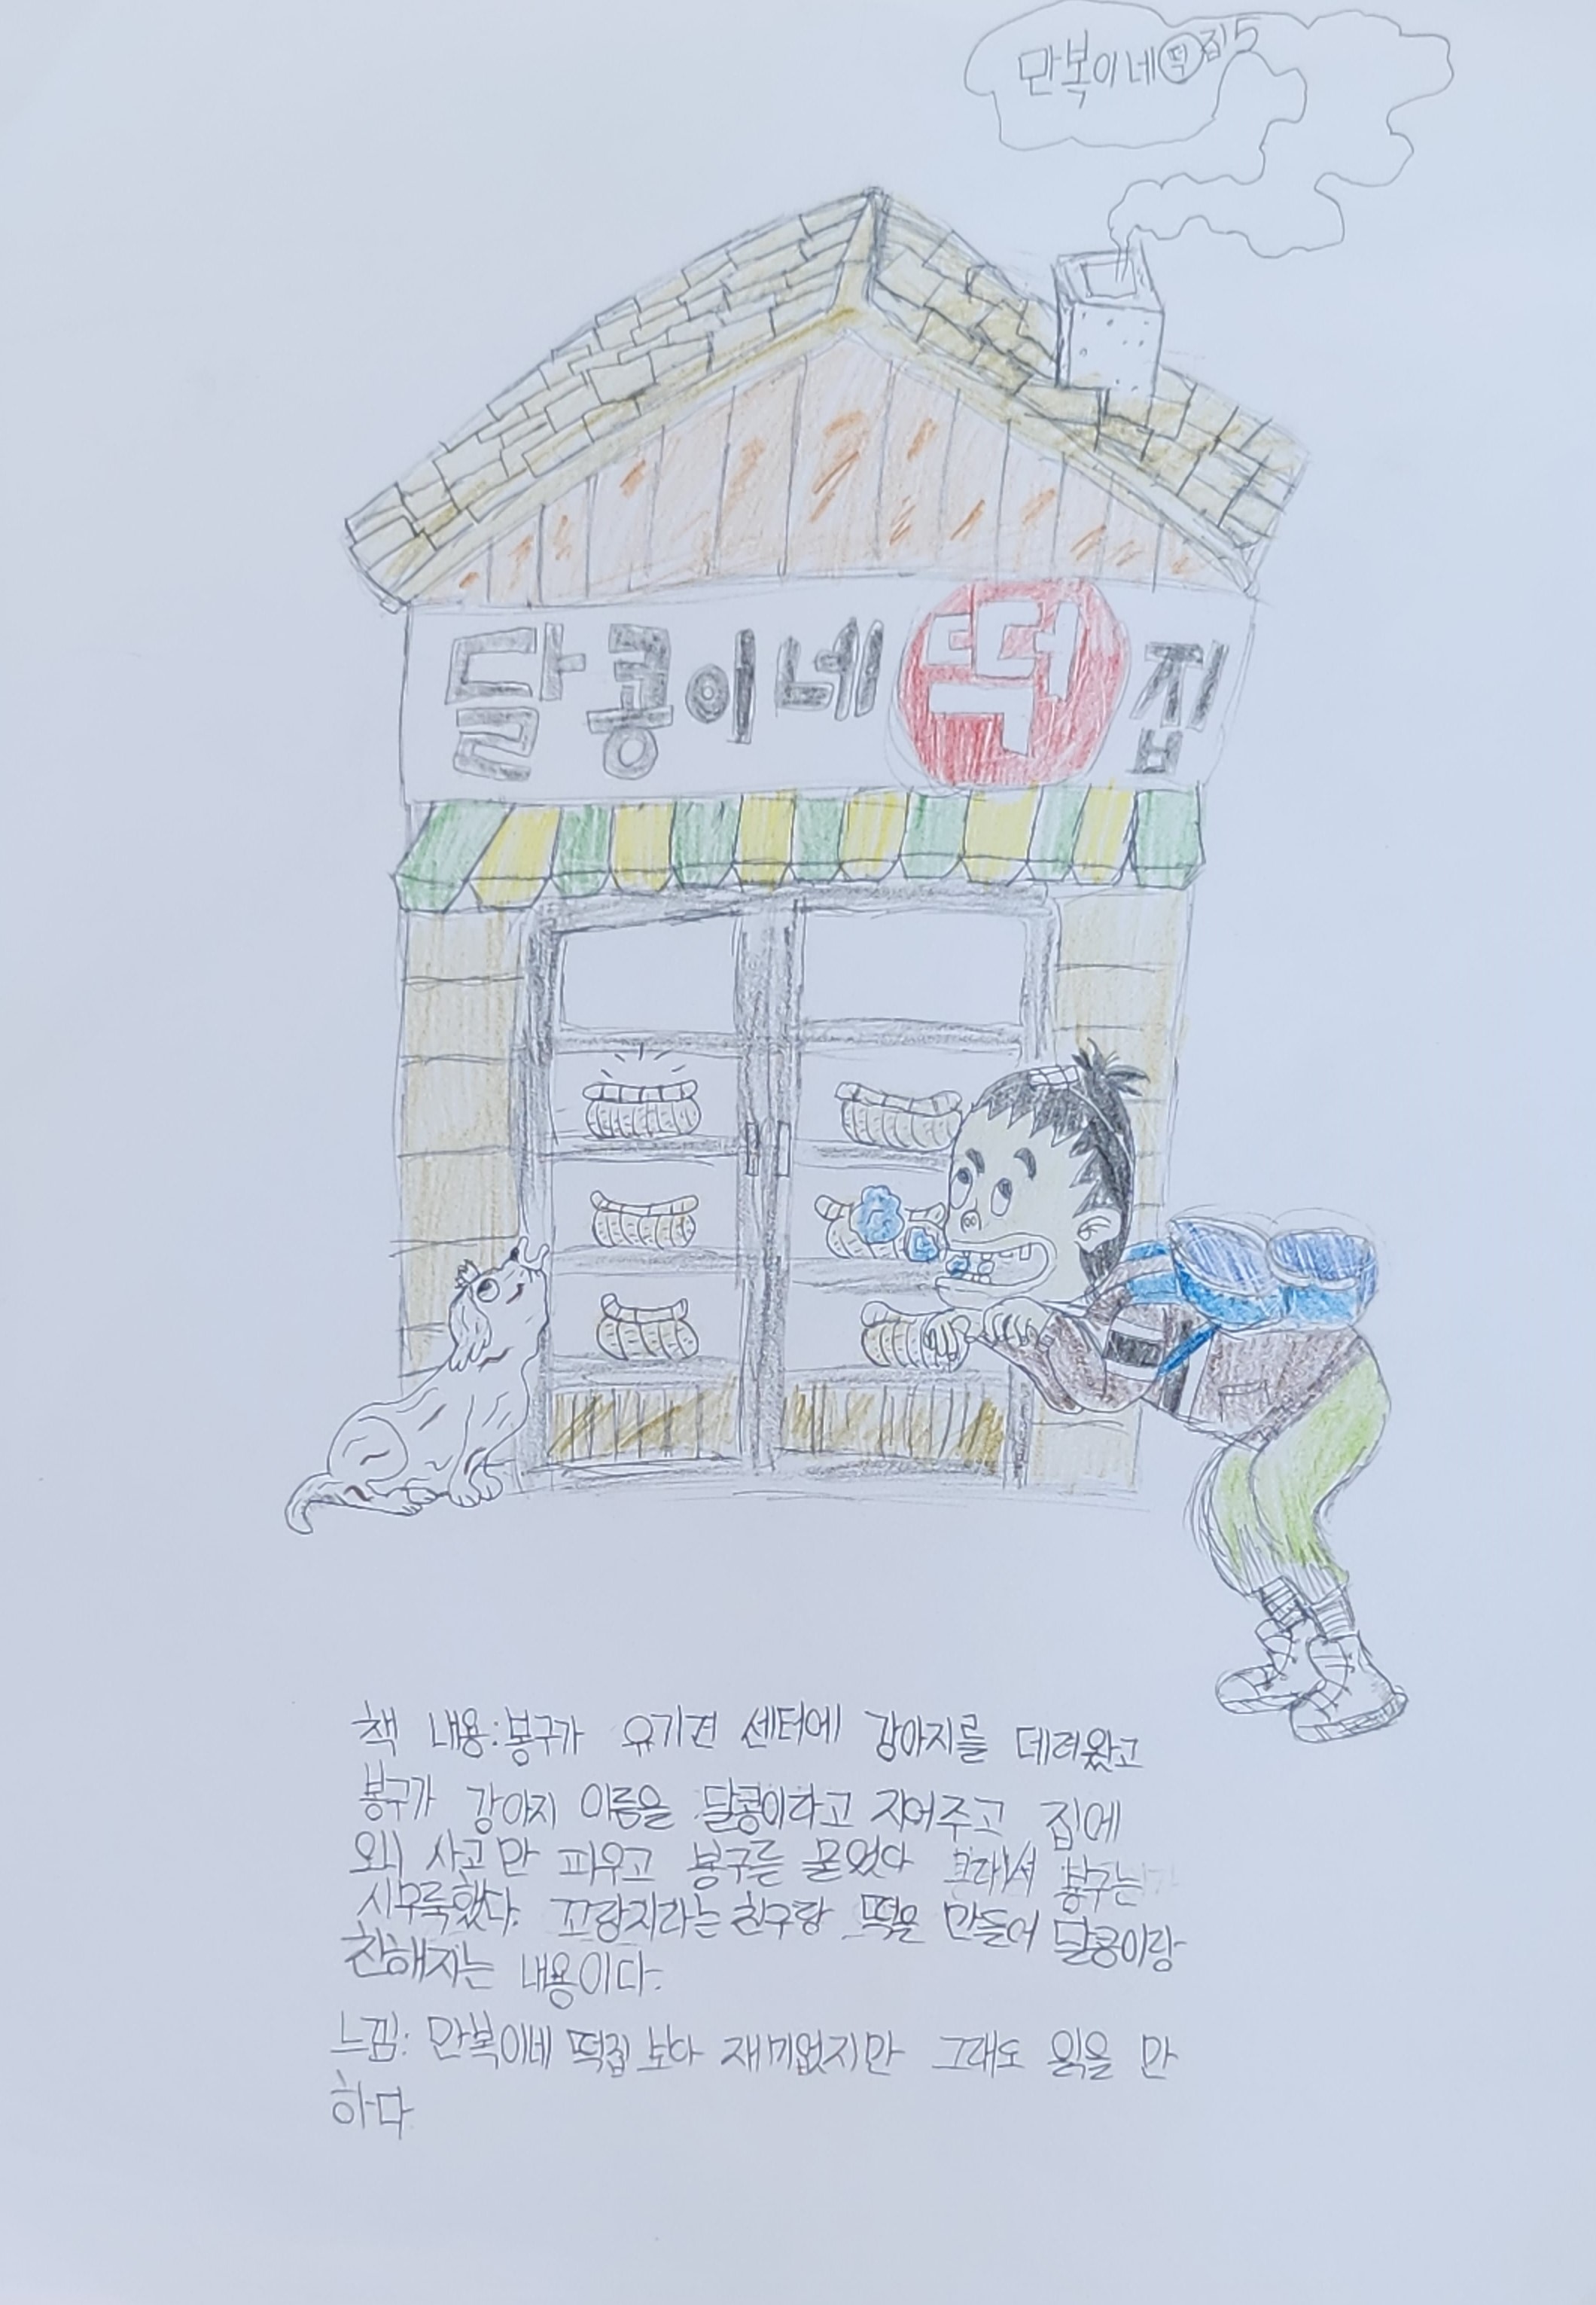 만복이네 떡집5
달콩이네 떡집
책 내용:봉구가 유기견 센터에 강아지를 데려왔고
봉구가 강아지 이름을 달콩이라고 지어주고 집에
와서 사고만 피우고 봉구를 물었다 그래서 봉구는
시무룩했다. 꼬랑지라는 친구랑 떡을 만들어 달콩이랑
친해지는 내용이다.
느낌: 만복이네 떡집 보아 재미없지만 그래도 읽을 만
하다